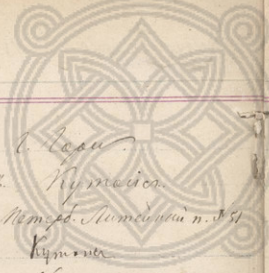 г. Гори.
Кутаиси.
Петерб. Литейный п. № 51
Кутаис